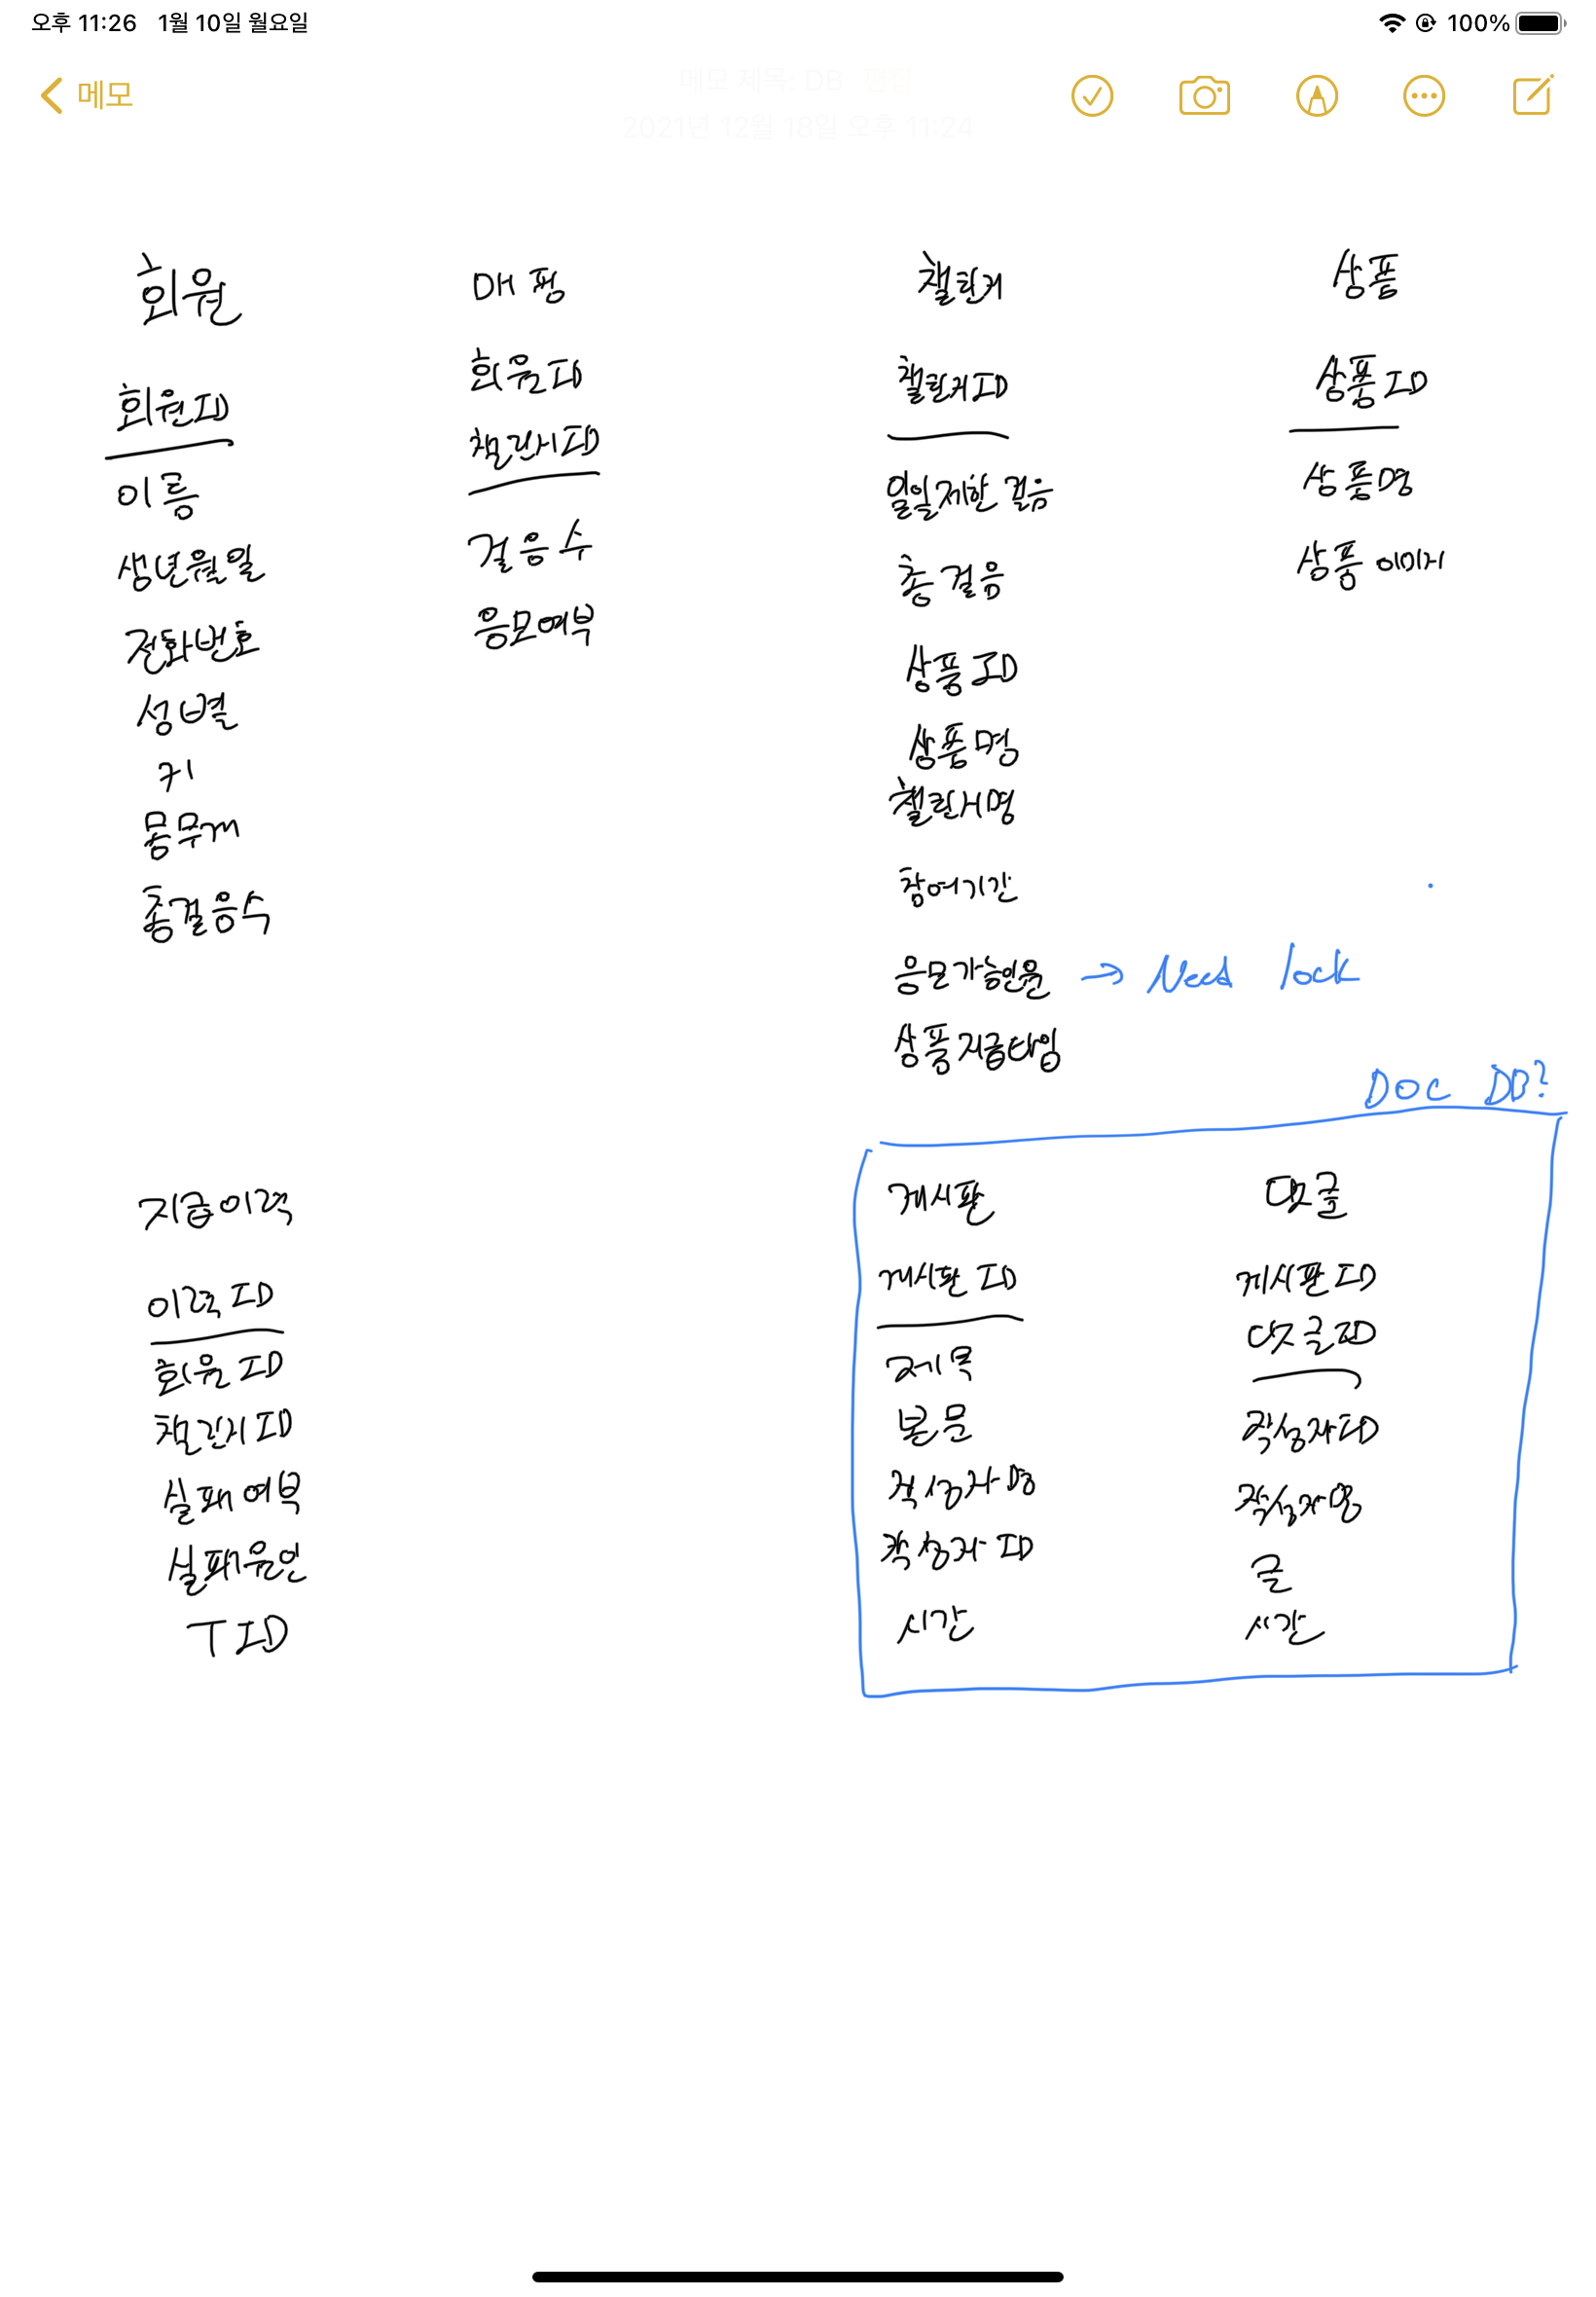 오후 11:26 1월 10일 월요일
100%
메모
메모 제목: DB 편집
2021년 12월 18일 오후 11:24
회원
회원ID
이름
생년월일
전화번호
성별
키
몸무게
총걸음수
매핑
회원ID
챌린지ID
걸음수
응모여부
챌린지
챌린지ID
일일제한 걸음
총 걸음
상품 ID
상품명
챌린지명
참여기간
응모가능인원 → Need lock
상품지급타임
상품
상품 ID
상품명
상품 이미지
지급이력
이력 ID
회원 ID
챌린지 ID
실패여부
실패원인
TID
DOC DB?
게시판
게시판 ID
제목
본문
작성자명
작성자 ID
시간
댓글
게시판 ID
댓글ID
작성자ID
작성자명
글
시간